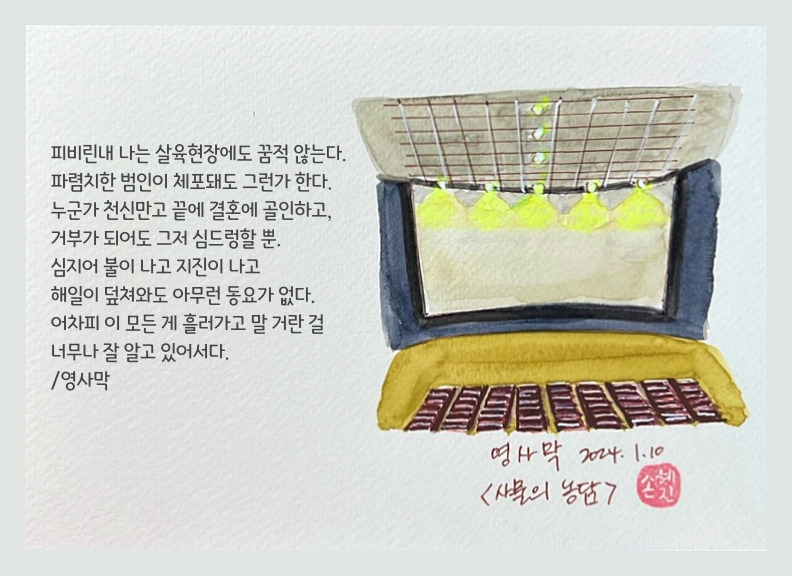 피비린내 나는 살육현장에도 꿈적 않는다.
파렴치한 범인이 체포돼도 그런가 한다.
누군가 천신만고 끝에 결혼에 골인하고,
거부가 되어도 그저 심드렁할 뿐.
심지어 불이 나고 지진이 나고
해일이 덮쳐와도 아무런 동요가 없다.
어차피 이 모든 게 흘러가고 말 거란 걸
너무나 잘 알고 있어서다.
/영사막
영사막 2024. 1. 10
<사물의 농담>
손혜진